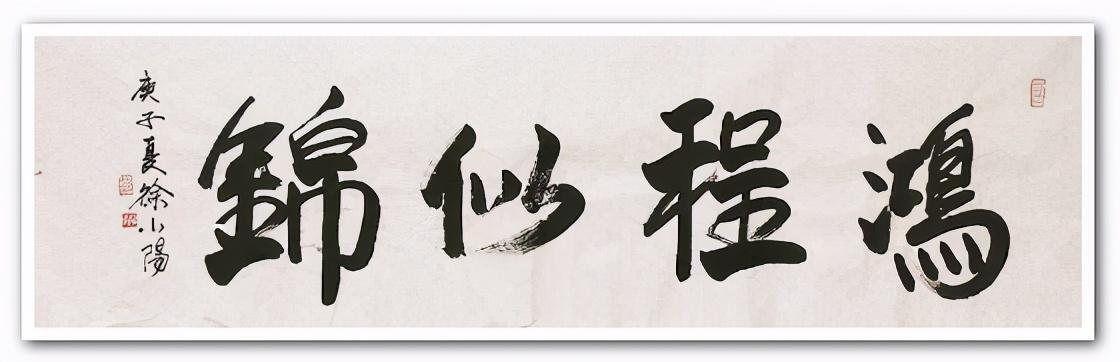 鴻程似錦
庚子夏徐小陽